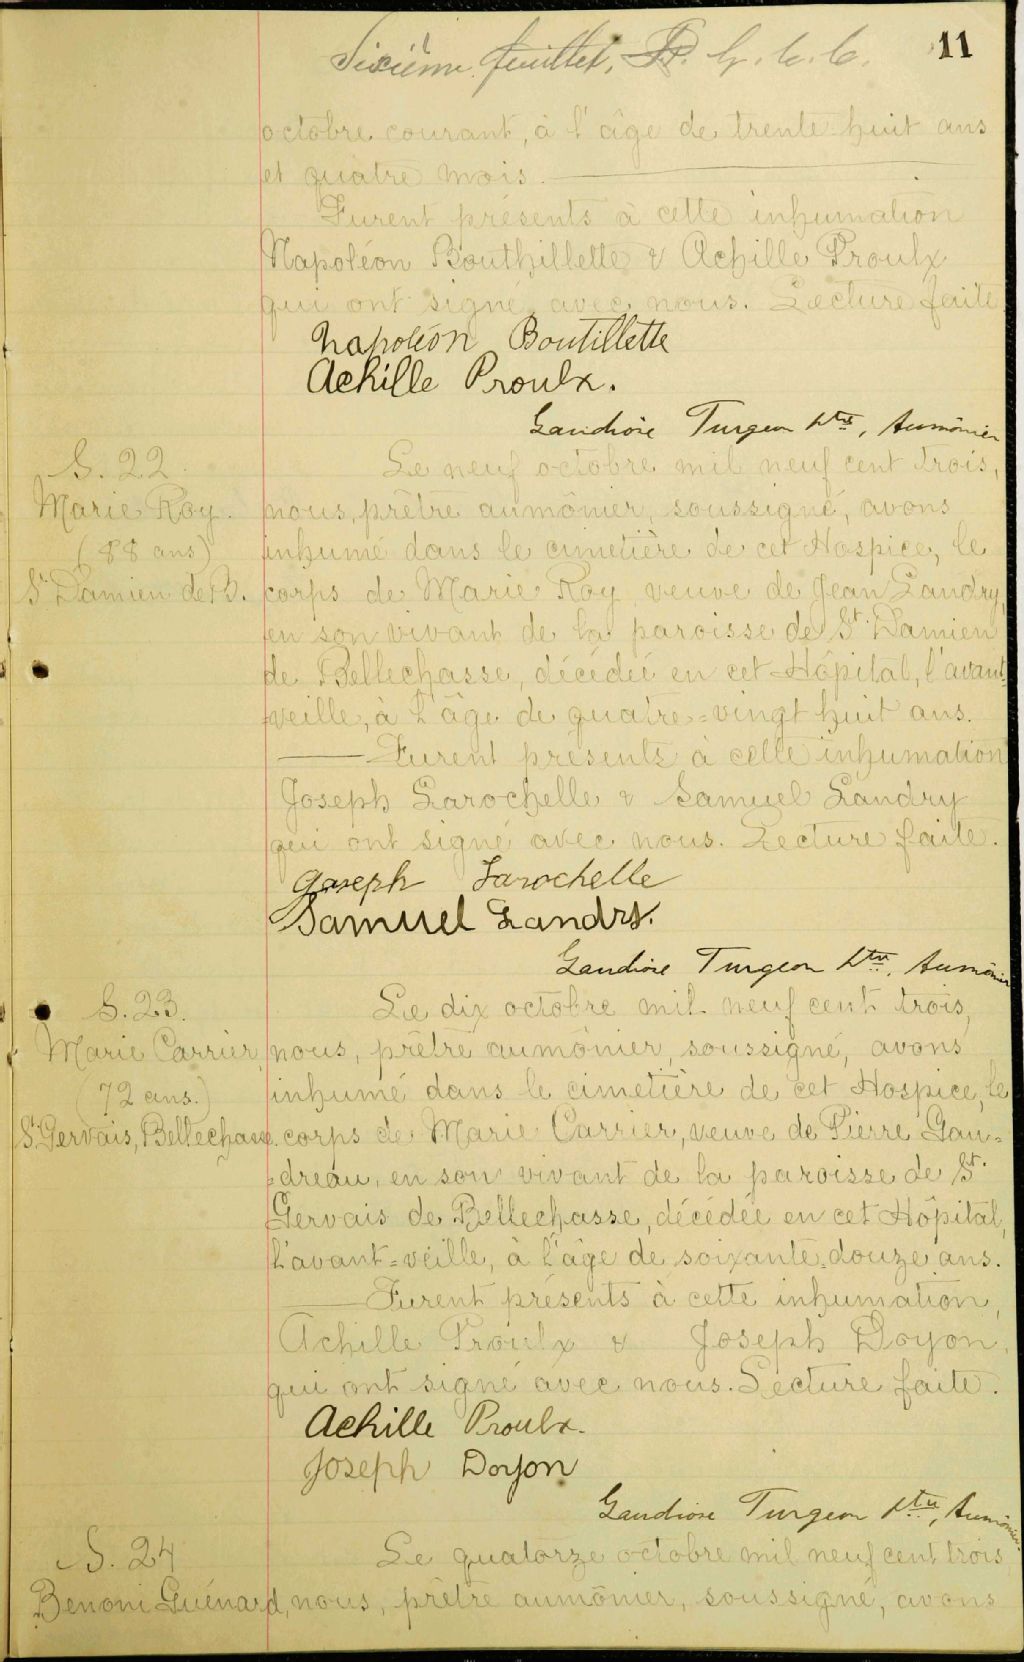 Sixième feuillet,
11
octobre courant, à l'âge de trente huit ans
et quatre mois.
Furent présents à cette inhumation
Napoléon Bouthillette & Achille Proulx
qui ont signé avec nous. Lecture faite
Napoléon Boutillette
Achille Proulx.
Gaudiose Turgeon Ptre, Aumônier
S. 22.
Marie Roy.
(88 ans)
St Damien de B.
Le neuf octobre mil neuf cent trois,
nous, prêtre aumônier, soussigné, avons
inhumé dans le cimetière de cet Hospice, le
corps de Marie Roy, veuve de Jean Landry,
en son vivant de la paroisse de St. Damien
de Bellechasse, décédée en cet Hôpital, l'avant-
veille, à l'âge de quatre=vingt huit ans.
Furent présents à cette inhumation
Joseph Larochelle & Samuel Landry
qui ont signé avec nous. Lecture faite.
Joseph Larochelle
Samuel Landry.
Gaudiose Turgeon Ptre, Aumônier
S. 23.
Marie Carrier,
(72 ans.)
St Gervais, Bellechasse.
Le dix octobre mil neuf cent trois,
nous, prêtre aumônier, soussigné, avons
inhumé dans le cimetière de cet Hospice, le
corps de Marie Carrier, veuve de Pierre Gau=
=dreau, en son vivant de la paroisse de St.
Gervais de Bellechasse, décédée en cet Hôpital,
l'avant=veille, à l'âge de soixante=douze ans.
Furent présents à cette inhumation,
Achille Proulx & Joseph Doyon,
qui ont signé avec nous. Lecture faite.
Achille Proulx.
Joseph Doyon
Gaudiose Turgeon Ptre, Aumônier
S. 24
Benoni Guénard,
Le quatorze octobre mil neuf cent trois
nous, prêtre aumônier, soussigné, avons